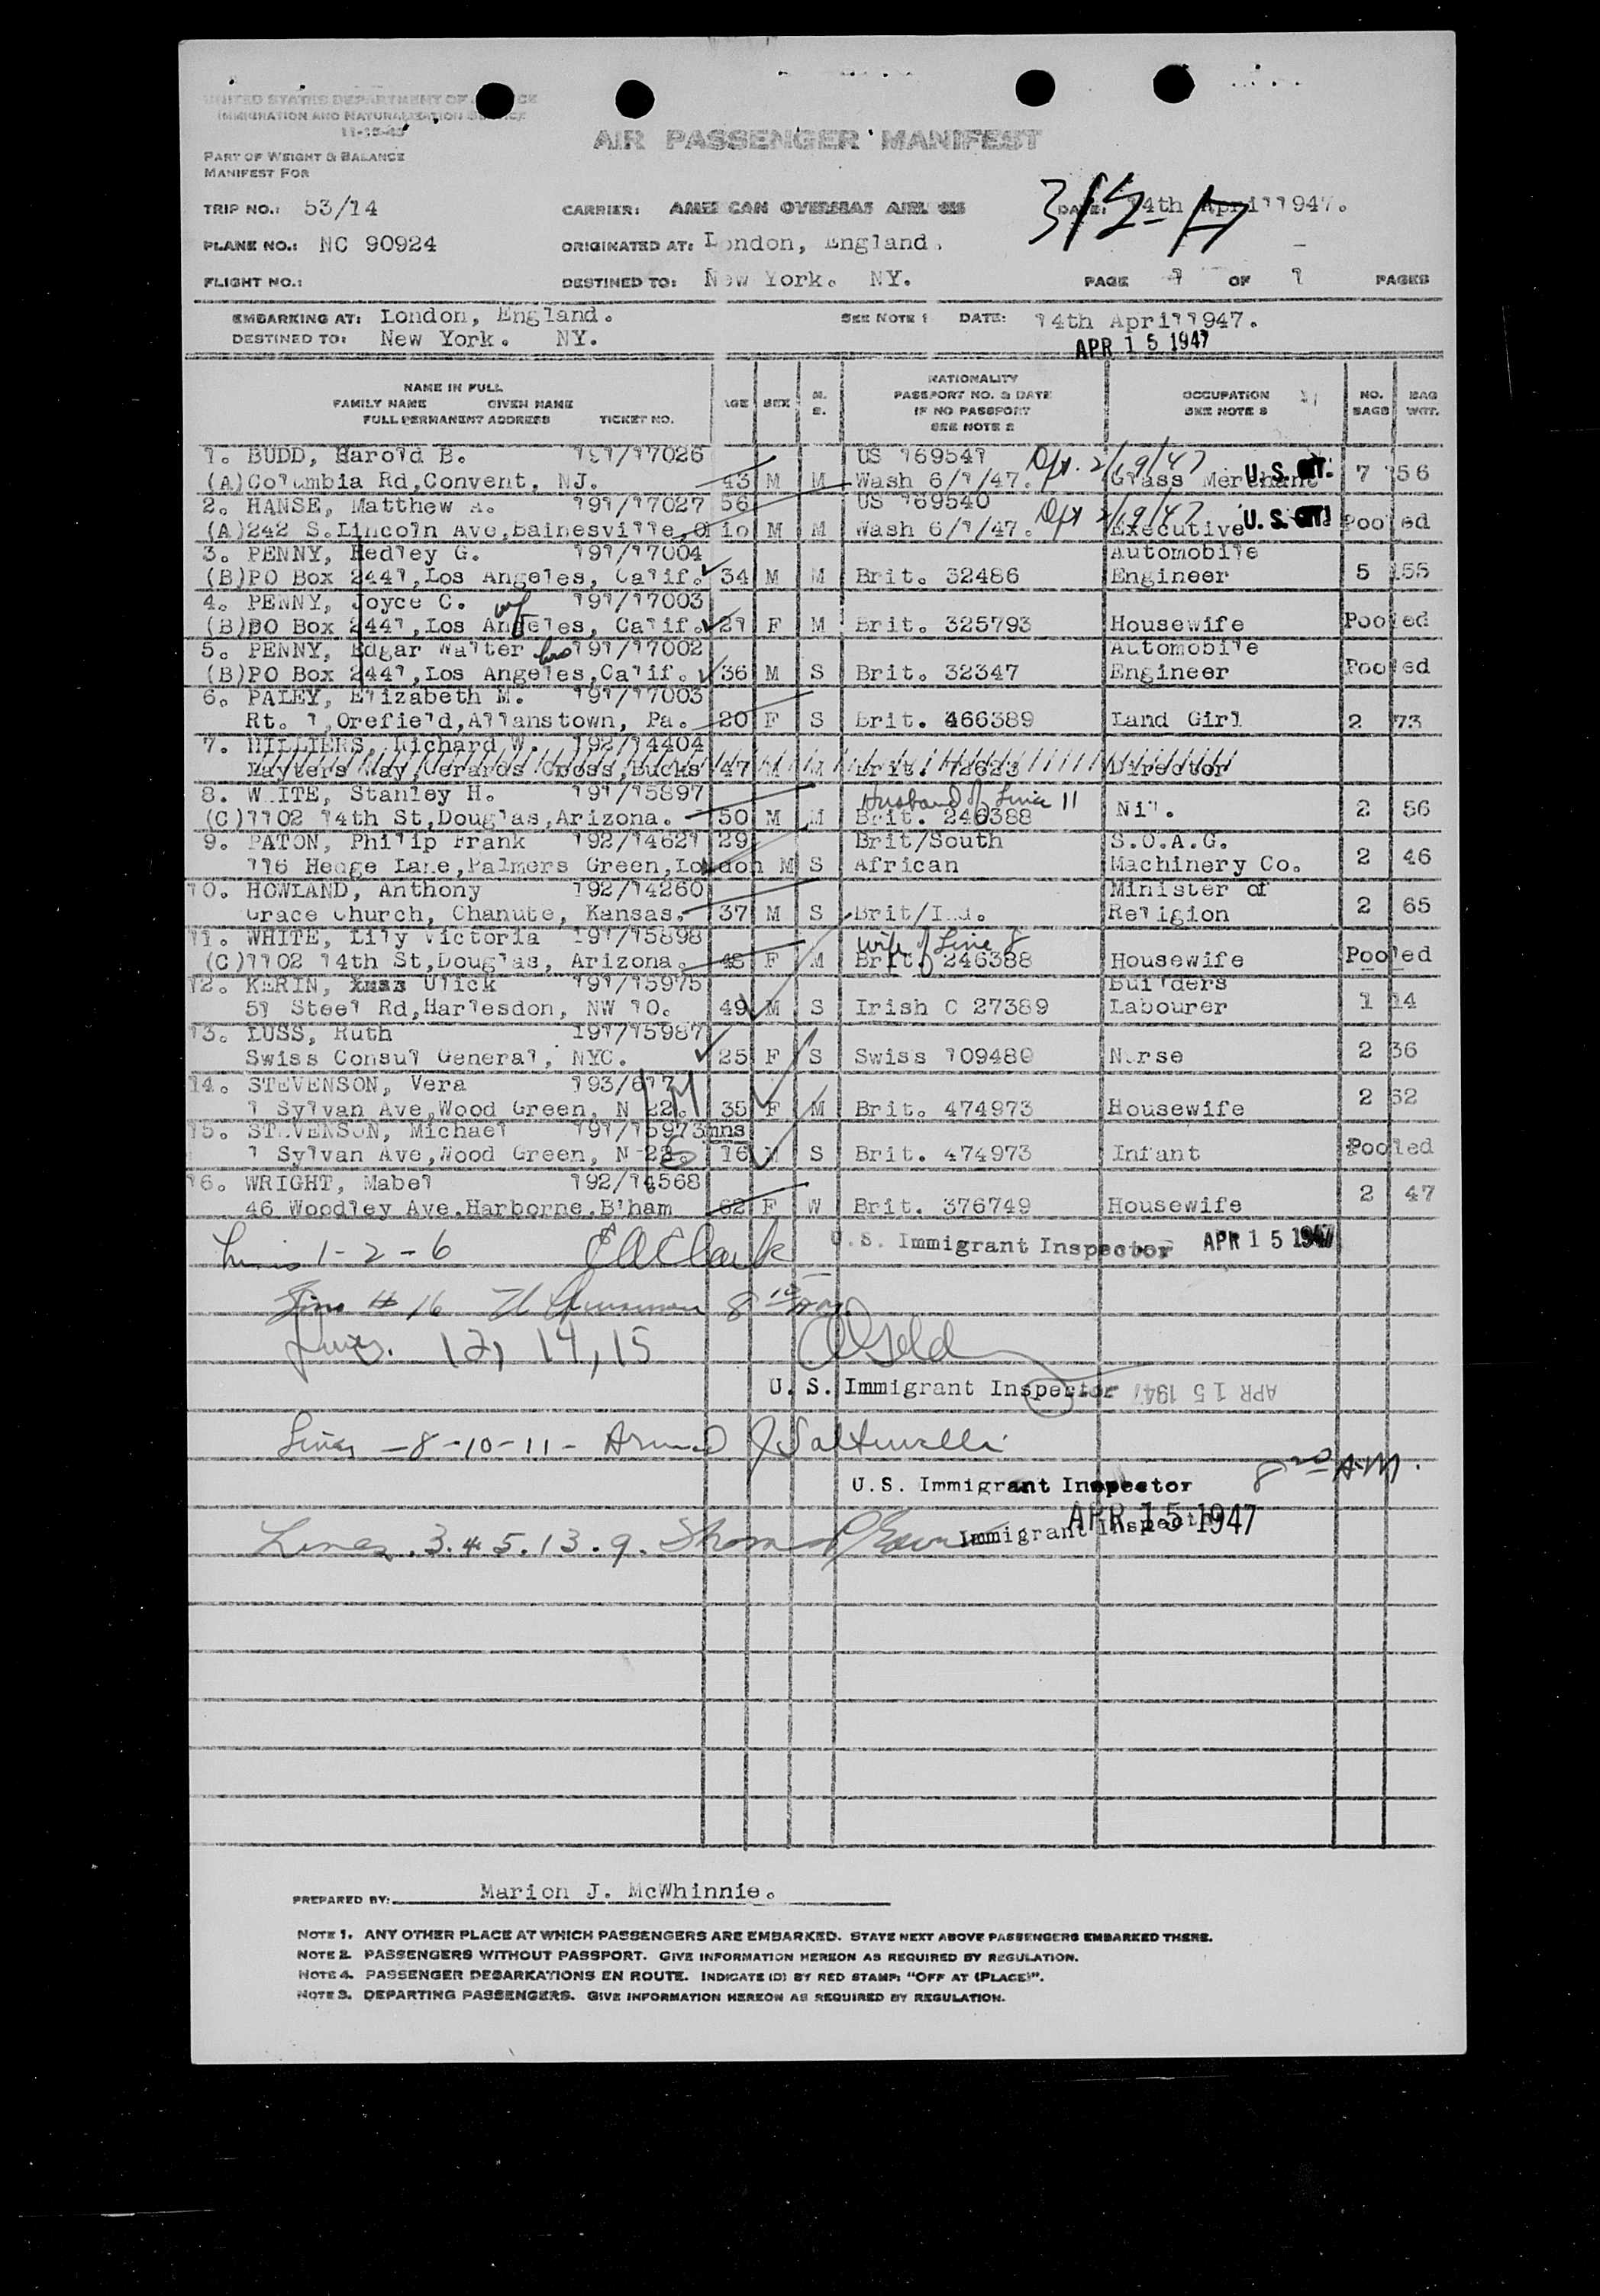 UNITED STATES DEPARTMENT OF
IMMIGRATION AND NATURALIZATION
11-15-45
AIR PASSENGER MANIFEST
PART OF WEIGHT & BALANCE
MANIFEST FOR
TRIP NO.: 53/14 CARRIER: AMERICAN OVERSEAS AIRLINES DATE: 14th April 1947.
315-17
PLANE NO.: NC 90924 ORIGINATED AT: London, England.
FLIGHT NO.: DESTINED TO: New York. NY. PAGE 1 OF 1 PAGES
EMBARKING AT: London, England. SEE NOTE 1 DATE: 14th April 1947.
DESTINED TO: New York. NY. APR 15 1947
NAME IN FULL
FAMILY NAME GIVEN NAME
FULL PERMANENT ADDRESS TICKET NO. AGE SEX M. S. NATIONALITY PASSPORT NO. & DATE IF NO PASSPORT SEE NOTE 2 OCCUPATION SEE NOTE 3 NO. BAGS BAG WGT.
1. BUDD, Harold B. 191/17026 US 169541 Dpt. 2/19/47
(A)Columbia Rd,Convent, NJ. 43 M M Wash 6/1/47. Glass Merchant U.S. CIT. 7 156
2. HANSE, Matthew A. 191/17027 56 US 169540 Dpt 2/19/47
(A)242 S.Lincoln Ave,Bainesville,Ohio M M Wash 6/1/47. Executive U.S. CIT. Pooled
3. PENNY, Hedley G. 191/17004 Automobile
(B)PO Box 2441,Los Angeles, Calif. 34 M M Brit. 32486 Engineer 5 155
4. PENNY, Joyce C. wf 191/17003
(B)PO Box 2441,Los Angeles, Calif. 21 F M Brit. 325793 Housewife Pooled
5. PENNY, Edgar Walter bro 191/17002 Automobile
(B)PO Box 2441,Los Angeles,Calif. 36 M S Brit. 32347 Engineer Pooled
6. PALEY, Elizabeth M. 191/17003
Rt. 1,Orefield,Allanstown, Pa. 20 F S Brit. 466389 Land Girl 2 73
7. HILLIERS, Richard W. 192/14404
Hayters Way,Gerards Cross,Bucks 47 M M Brit. 72623 Director
8. WHITE, Stanley H. 191/15897 Husband of Line 11
(C)1102 14th St,Douglas,Arizona. 50 M M Brit. 246388 Nil. 2 86
9. PATON, Philip Frank 192/14621 29 Brit/South S.O.A.G.
116 Hedge Lane,Palmers Green,London M S African Machinery Co. 2 46
10. HOWLAND, Anthony 192/14260 Minister of
Grace Church, Chanute, Kansas. 37 M S Brit/Ind. Religion 2 65
11. WHITE, Lily Victoria 191/15898 wife of Line 8
(C)1102 14th St,Douglas, Arizona. 48 F M Brit. 246388 Housewife Pooled
12. KERIN, Ulick 191/15975 Builders
51 Steel Rd,Harlesdon, NW 10. 49 M S Irish C 27389 Labourer 1 14
13. LUSS, Ruth 191/15987
Swiss Consul General, NYC. 25 F S Swiss 109480 Nurse 2 36
14. STEVENSON, Vera 193/617
1 Sylvan Ave,Wood Green, N 22. 35 F M Brit. 474973 Housewife 2 62
15. STEVENSON, Michael 191/15973 mns
1 Sylvan Ave,Wood Green, N-22. 16 M S Brit. 474973 Infant Pooled
16. WRIGHT, Mabel 192/14568
46 Woodley Ave.Harborne.B'ham 62 F W Brit. 376749 Housewife 2 47
Lines 1-2-6 E A Clark U.S. Immigrant Inspector APR 15 1947
Line # 16
Lines. 12, 14, 15
U. S. Immigrant Inspector APR 15 1947
Lines - 8-10-11-
8 20 AM.
U.S. Immigrant Inspector
APR 15 1947
Lines. 3.4.5.13.9. Immigrant Inspector
PREPARED BY: Marion J. McWhinnie.
NOTE 1. ANY OTHER PLACE AT WHICH PASSENGERS ARE EMBARKED. STATE NEXT ABOVE PASSENGERS EMBARKED THERE.
NOTE 2. PASSENGERS WITHOUT PASSPORT. GIVE INFORMATION HEREON AS REQUIRED BY REGULATION.
NOTE 4. PASSENGER DEBARKATIONS EN ROUTE. INDICATE (D) BY RED STAMP: "OFF AT (PLACE)".
NOTE 3. DEPARTING PASSENGERS. GIVE INFORMATION HEREON AS REQUIRED BY REGULATION.